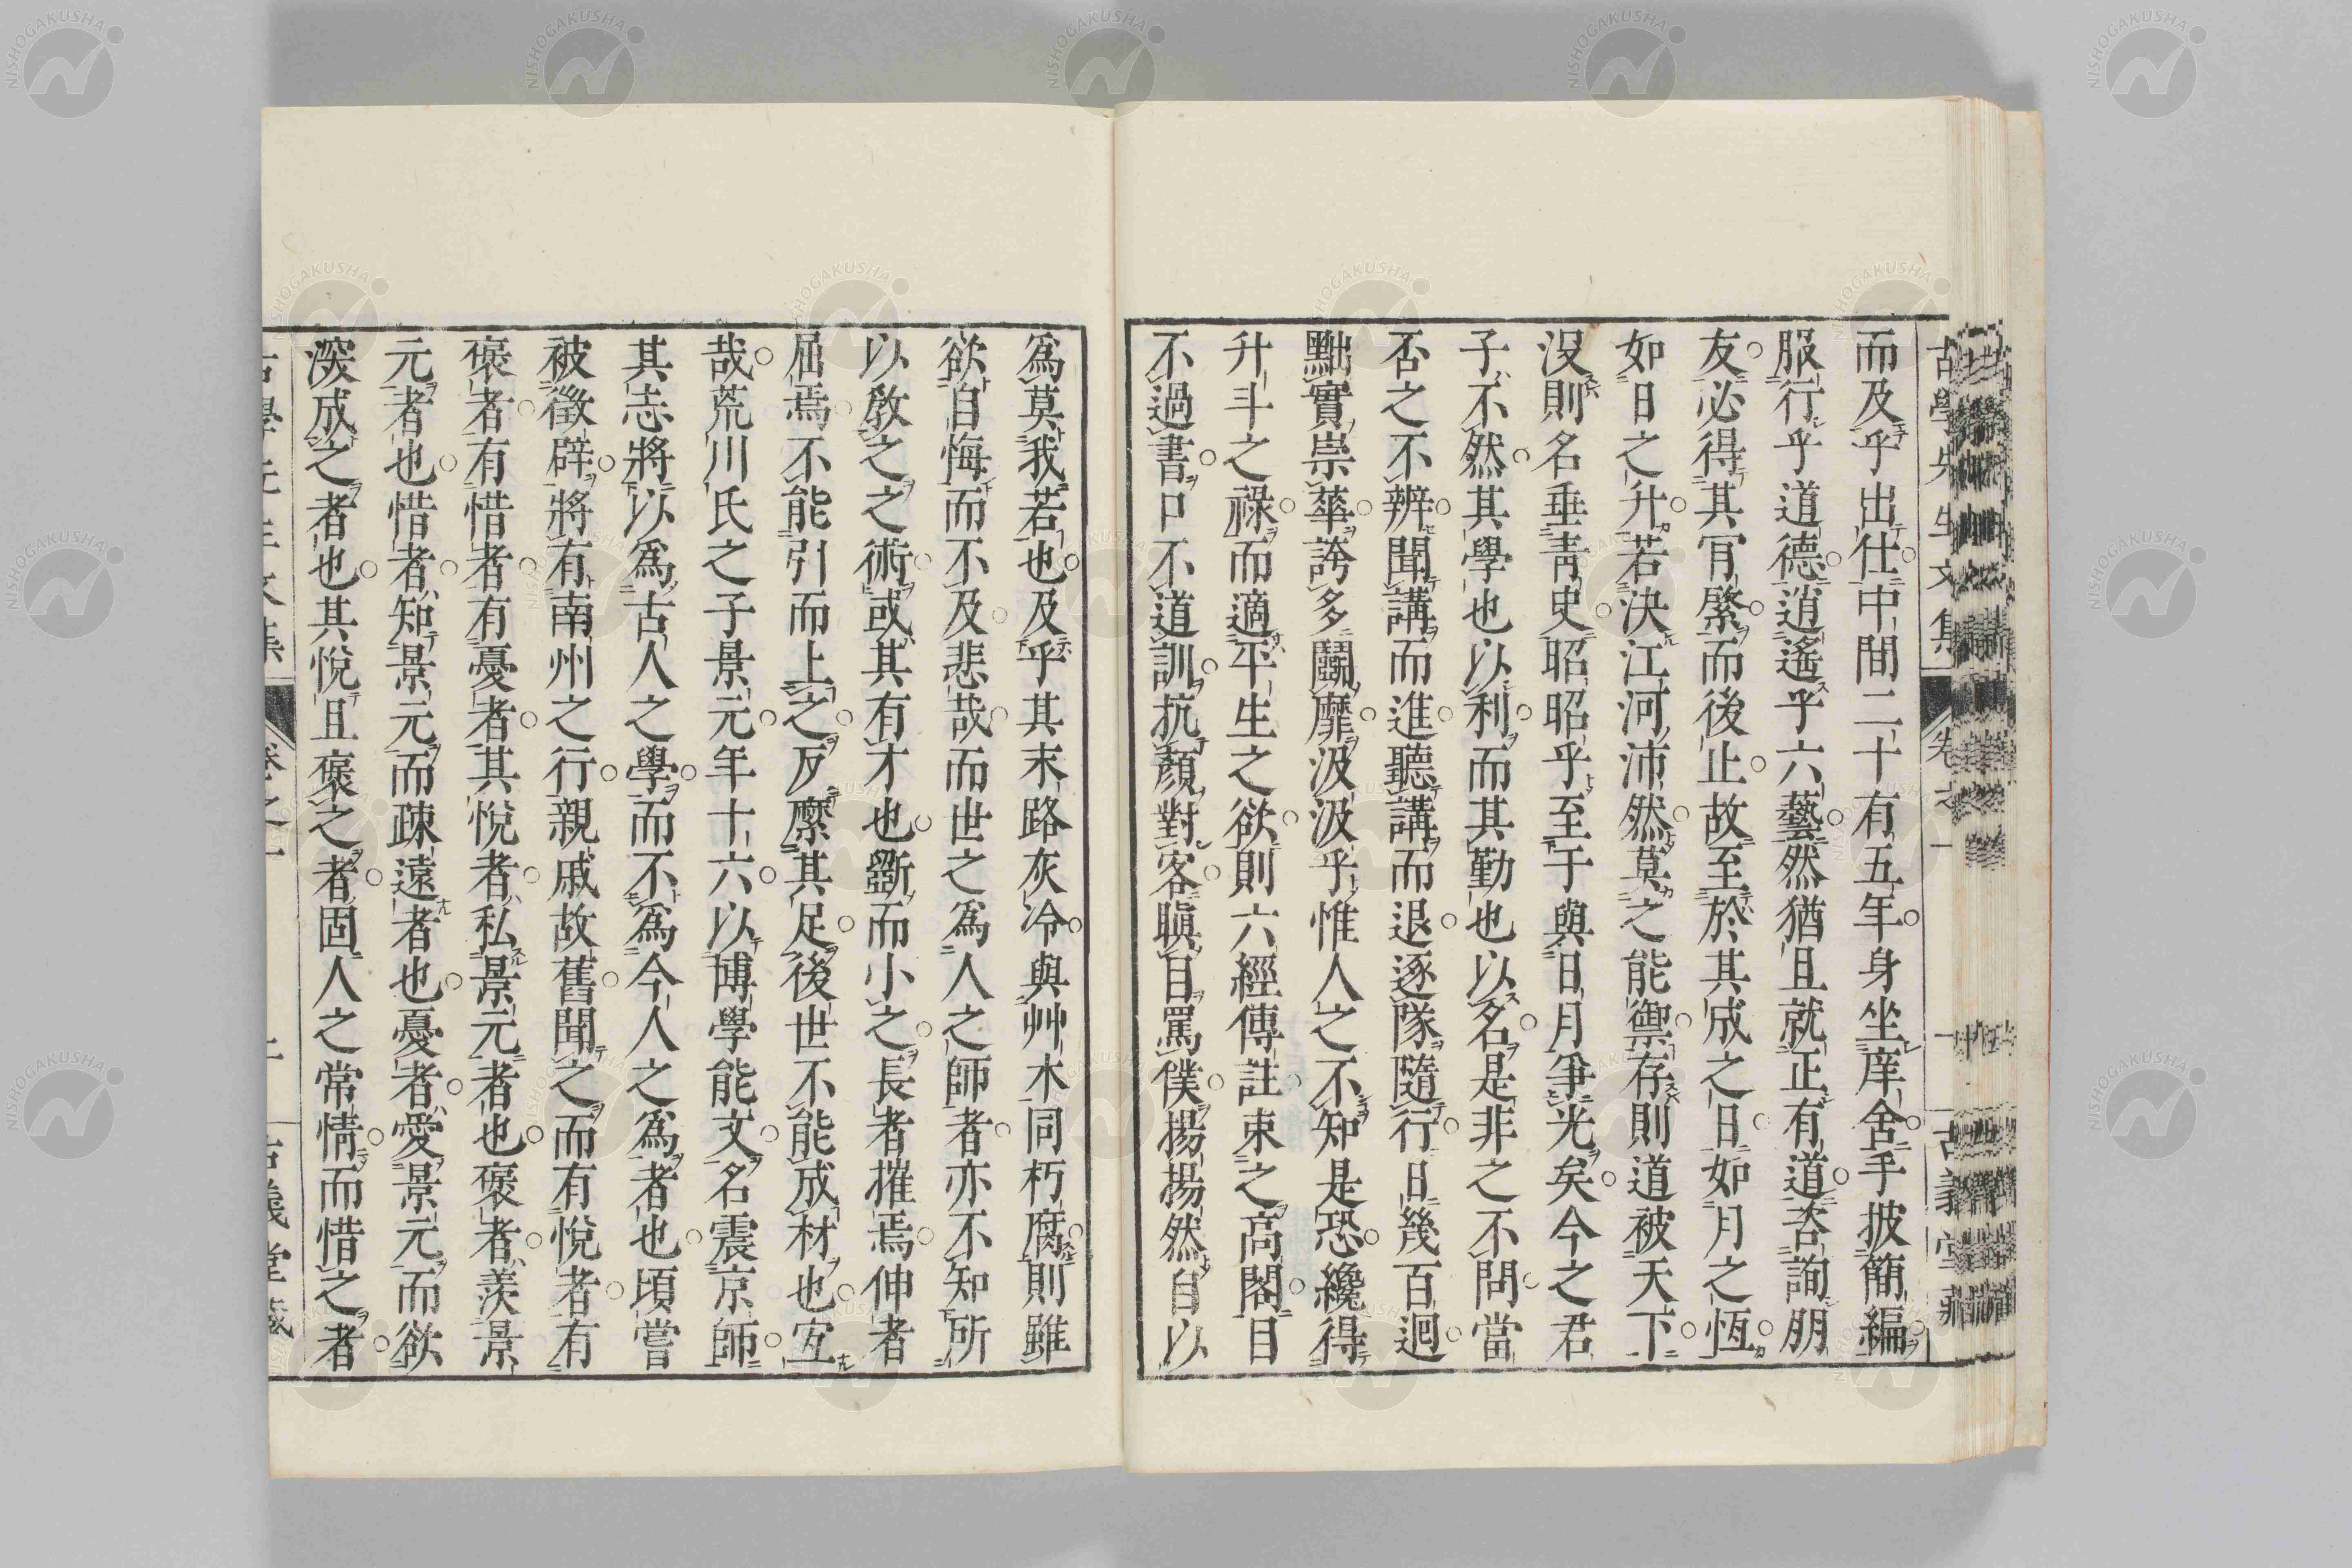 古學先生文集 卷之一 古義堂藏
而及乎出仕中間二十有五年身坐庠舍手披簡編
服行乎道德逍遙乎六藝然猶且就正有道咨詢朋
友必得其肎綮而後止故至於其成之日如月之恆
如日之升若決江河沛然莫之能禦存則道被天下
沒則名垂靑史昭昭乎至于與日月爭光矣今之君
子不然其學也以利而其勤也以名是非之不問當
否之不辨聞講而進聽講而退逐隊隨行日幾百迴
黜實崇華誇多鬪靡汲汲乎惟人之不知是恐纔得
升斗之祿而適平生之欲則六經傳註束之高閣目
不過書口不道訓抗顏對客瞋目罵僕揚揚然自以
爲莫我若也及乎其末路灰冷與艸木同朽腐則雖
欲自悔而不及悲哉而世之爲人之師者亦不知所
以敎之之術或其有才也斵而小之長者摧焉伸者
屈焉不能引而上之反縻其足後世不能成材也宐
哉荒川氏之子景元年十六以博學能文名震京師
其志將以爲古人之學而不爲今人之爲者也頃嘗
被徵辟將有南州之行親戚故舊聞之而有悅者有
褒者有惜者有憂者其悅者私景元者也褒者羨景
元者也惜者知景元而疎遠者也憂者愛景元而欲
深成之者也其悅且褒之者固人之常情而惜之者
古學先生文集 卷之一 古義堂藏